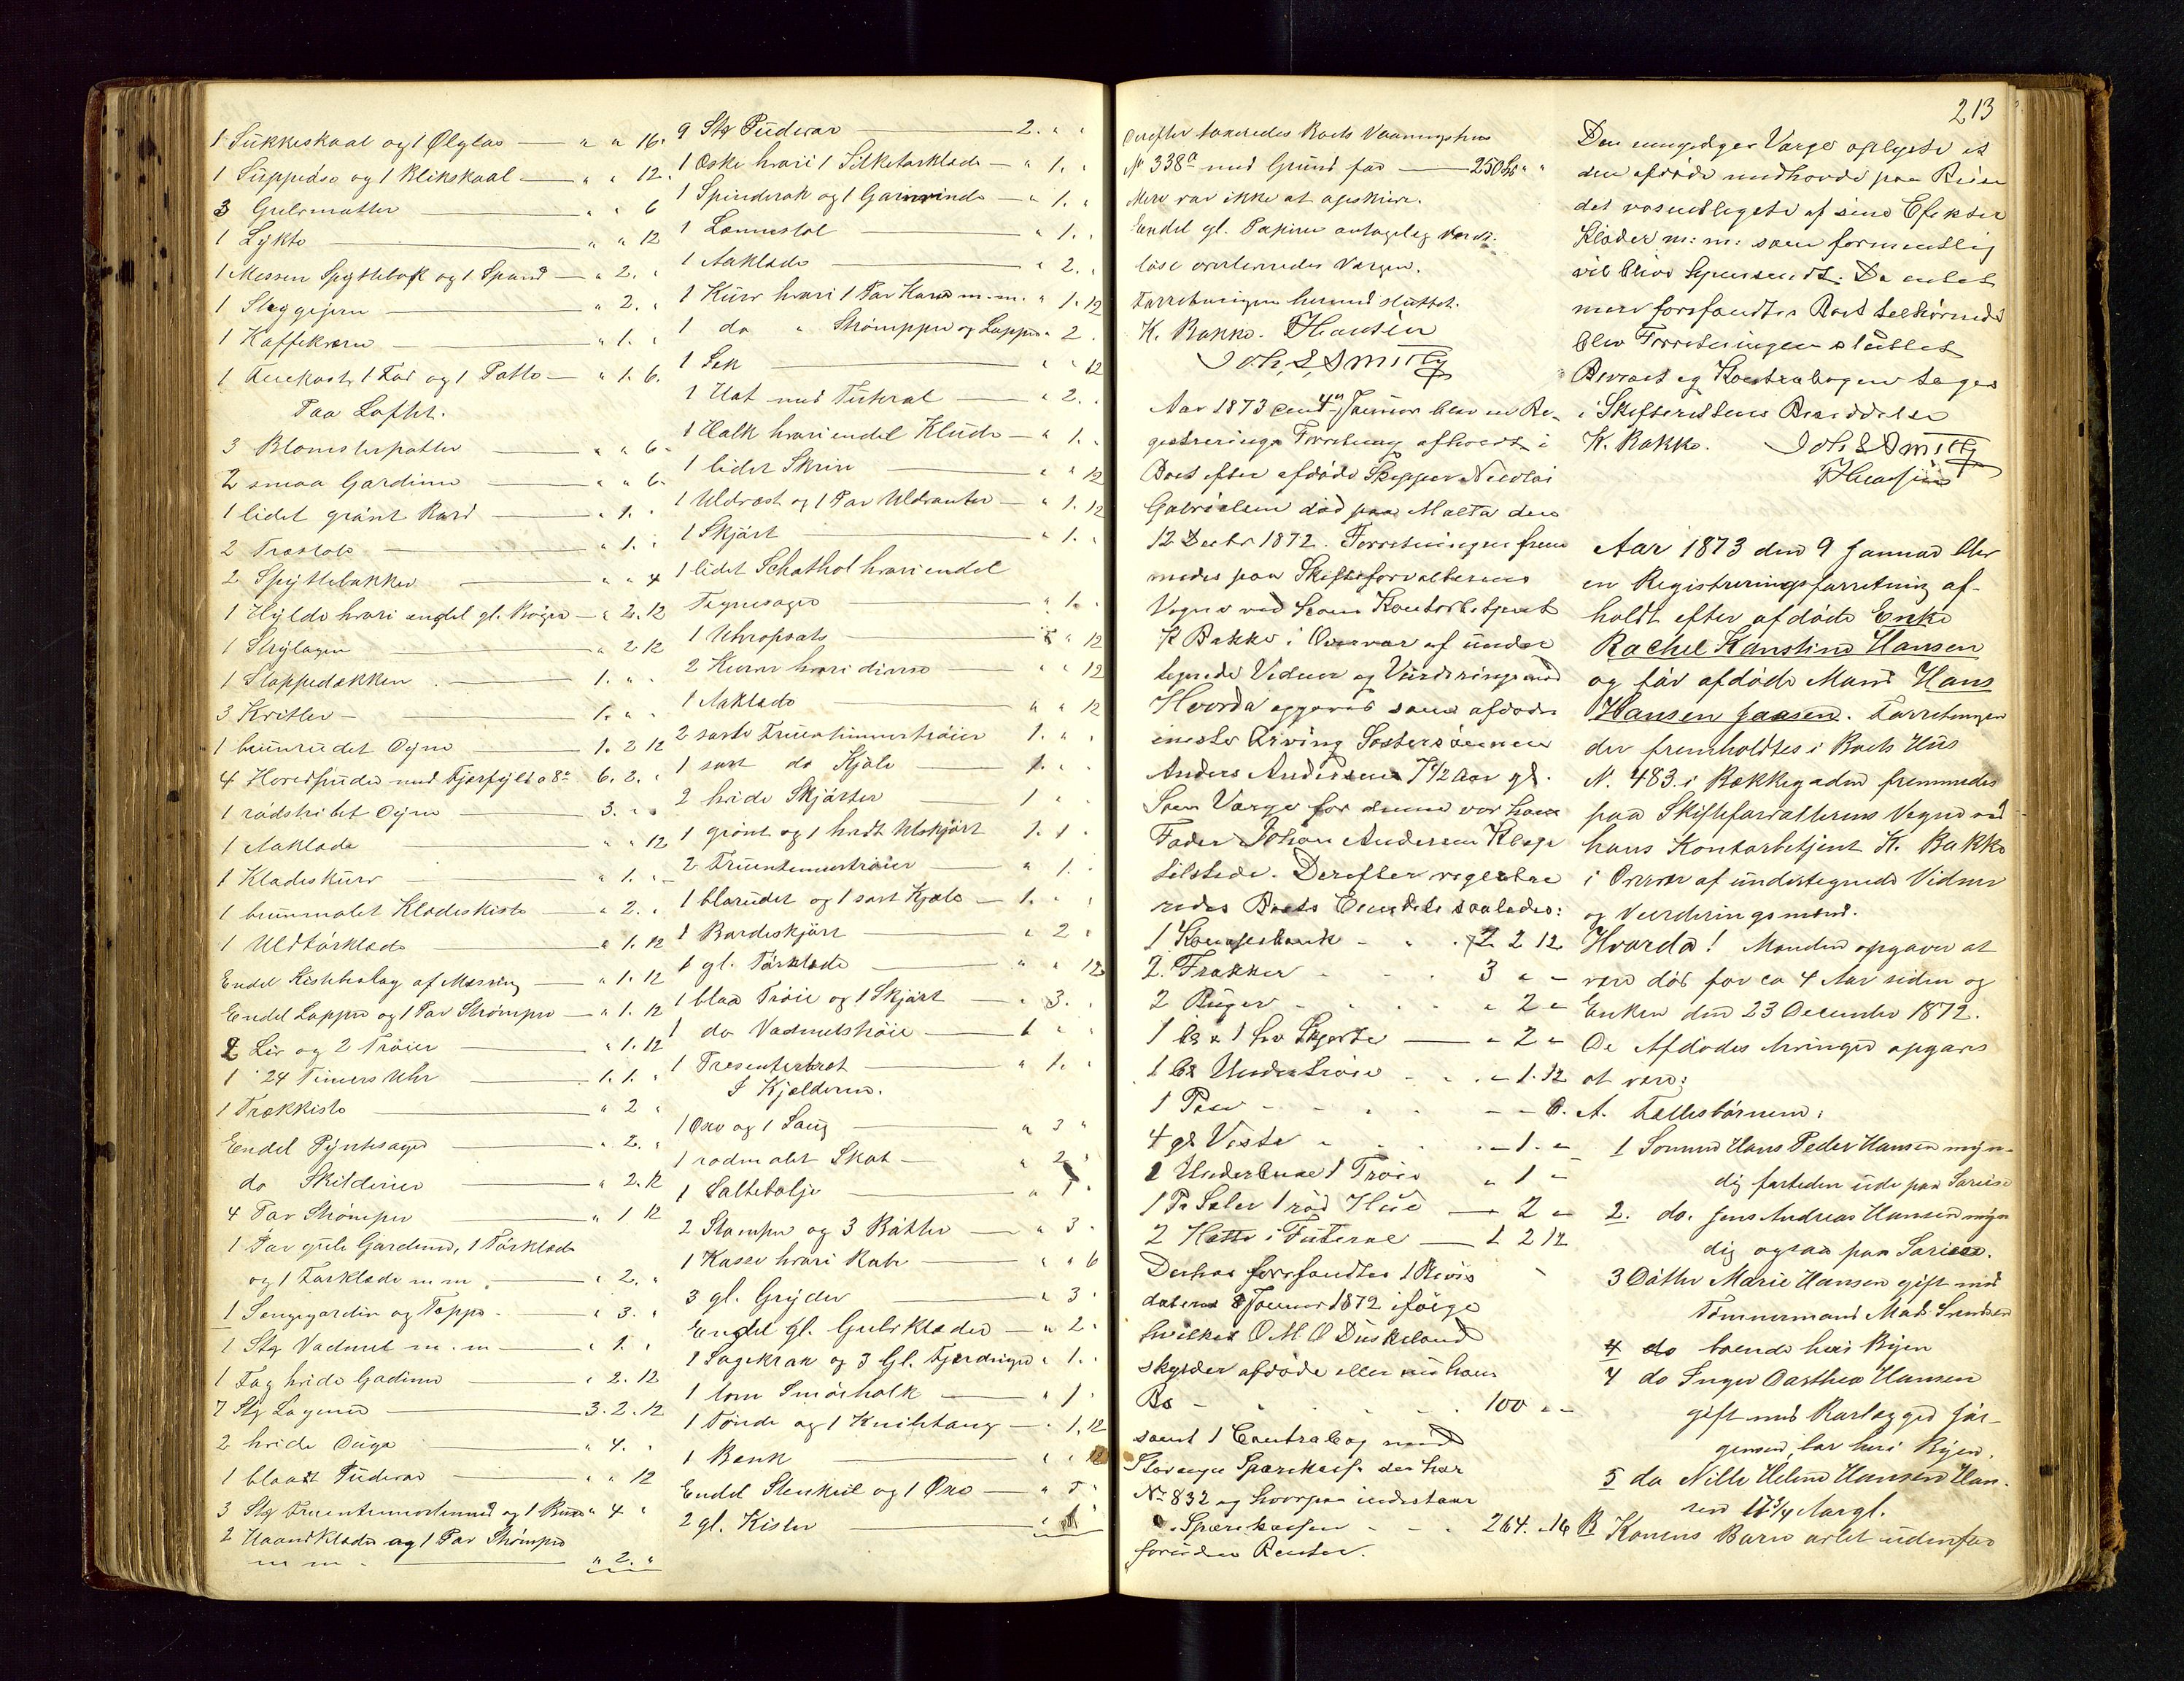 1 Sukkeskaal og 1 Ølglas — " " 16.
1 Suppedse og 1 Blikskaal — " " 12.
3 Gulvmatter " " 6
1 Lÿkte " " 12
1 Messen Spyttebak og 1 Spand — " 2. "
1 Stryggejern " 2. "
1 Kaffekværn — " 1. "
1 1 Fad og 1 Potte — " 1. 6.
Paa Loftet.
3 Blomsterpotter " " 6
2 smaa Gardiner " " 6
1 lidet grønt Bord — " 1. "
2 Træstole — " 1. "
2 Spÿttebakker — " " 4
1 Hÿlde hvori endel gl. Bøger — " 2. 12
1 Strÿlagen " 2 12
1 Stoppedækken — 1. " "
3 Kritler — 1. " "
1 brunrudet Dÿne — 1. 2 12
4 Hovedpuder med Fjærfÿld a 8 — 6. 2. "
1 rødstribet Dÿne — 3. " "
1 Aaklæde " " 12
1 Klædeskurv " 1. "
1 brunmalet Klædeskiste — " 2. "
1 Uldtørklæde — " 1. 12
Endel Kistebeslag af Messing — " 1. 12
Endel Lapper og 1 Par Strømper — " 1. 12
2 Liv og 2 Trøier " 1. 12
1 24 Timers Uhr — 1. 1. "
1 Trækkiste " 2 "
Endel Pÿntesager " 2. "
do Skilderier " 2. 12
4 Par Strømper " 1 12
1 Par gule Gardiner, 1 Tørklæde
og 1 Forklæde m m — " 2. "
1 Sengegardin og Teppe — " 3. "
1 Stk Vadmel m. m — " 1. "
1 Fag hvide Gadiner " 2. 12
7 Stk Lagener — 3. 2. 12
2 hvide Duge " 4. "
1 blaat Pudevar " " 12
3 Stk Fruentimmerlinned og 1 Buxe " 4 "
2 Haandklæder og 1 Par Strømper
m m. — " 2. "
9 Stk Pudevar — 2. " "
1 Æske hvori 1 Silketørklæde — " 1. "
1 Spinderok og 1 Garnvinde — " 1. "
1 Lænnestol " 1. "
1 Aaklæde " 2. "
1 Kurv hvori 1 Par Karder m. m. " 1. 12
1 do " Strømpper og Lapper " 2 "
1 Sek " " 12
1 Hat med Futeral — " 2. "
1 Halk hvori endel Klude — " 1. "
1 lidet Skrin " " 12
1 Uldvest og 1 Par Uldvanter — " 1. 12
1 Skjørt " 1. "
1 lidet Schathol hvori endel
Tegnesager " 1. "
1 Uhropsats " " 12
2 Kurve hvori diverse " " 12
1 Aaklæde " " 12
2 sorte Fruentimmertrøier 1. " "
1 sort do Kjole — 1. " "
2 hvide Skjørter 1 " "
1 grønt og 1 hvidt Ulskjørt 1. 1 "
2 Fruentimmertrøier " 1. "
1 blarudet og 1 sort Kjole — 1. " "
1 Bardeskjørt " 2 "
1 gl. Tørklæde " " 12
1 blaa Trøie og 1 Skjørt — " 3. "
1 do Vadmelstrøie — 1 " "
1 Presenterbret " 1. "
I Kjelderen.
1 Øxe og 1 Saug " 3 "
1 rødmalet Skab — " 2 "
1 Saltebalje " 1 "
2 Stamper og 3 Bøtter — " 3 "
1 Kasse hvori Kab " " 6
3 gl. Grÿder " 3 "
Endel gl. Gulvklæder — " 2 "
1 Sagekrak og 3 gl. Fjerdinger " 1. "
1 tom Smørholk — " 1 "
1 Tønde og 1 Knibetang — " 1. 12
1 Benk " " 12
Endel Stenkul og 1 Øxe — " 5 "
2 gl. Kister " 1 "
213
Derefter taxeredes Boets Vaaningshus
No 338a med Grund for — 250 Sp " "
Mere var ikke at opskrive.
Endel gl. Papirer antagelig verdi-
løse overleveredes Vergen.
Forretningen hermed sluttet.
K. Bakke. Hansen
Joh. S. Smith
Aar 1873 den 4de Januar blev en Re-
gistrerings Forretning afholdt i
Boet efter afdøde Skipper Nicolai
Gabrielsen død paa Malta den
12 Decbr 1872. Forretningen frem
medes paa Skifteforvalterens
Vegne ved hans Kontorbetjent
K Bakke i Overvær af under
tegnede Vidner og Vurderingsmænd
Hvorda opgaves som afdødes
eneste Arving Søstersønnen
Anders Andersen 7 1/2 Aar gl.
Som Værge for denne var hans
Fader Johan Andersen Klepp
tilstede. Derefter registre
redes Boets Eiendele saaledes:
1 Kongesbænk - " . 2 2 12
2 Frakker - 3 " "
2 Buxer - " 2 "
1 bl & 1 hv Skjorte — " 2 "
1 bl Undertrøie " 1. 12
1 Pose - - " 6.
4 gl Veste " 1. "
2 Underbuxe 1 Trøie " 1 "
1 Pr Seler 1 rød Hue — " 2 "
2 Hatte i Futeral — 1 2 12
Derhos forefandtes 1 Bevis
dateret 8 Januar 1872 ifølge
hvilket O M O Duskeland
skylder afdøde eller nu hans
Bo - 100 " "
samt 1 Contrabog med
Stavanger Sparekasse der har
No 832 og hvorpaa indestaar
i Sparekassen - - 264. " 16
foruden Renter.
Den umyndiges Værge oplyste at
den afdøde medhavde paa Reise
det væsentligste af sine Efekter
Klæder m: m: som formentlig
vil blive hjemsendt. Da intet
mere forefandtes Boet tilhørende
blev Forretningen sluttet
Beviset og Kontrabogen toges
i Skifterettens Besiddelse
K. Bakke. Joh S Smith
Hansen
Aar 1873 den 9 Januar blev
en Registreringsforretning af-
holdt efter afdøde Enke
Rachel Kanstine Hansen
og før afdøde Mand Hans
Hansen Jaasen. Forretningen
der fremholdtes i Boets Hus
N. 483 i Bakkegaden fremmedes
paa Skifteforvalterens Vegne ved
hans Kontorbetjent K. Bakke
i Overvær af undertegnede Vidner
og Vurderingsmænd.
Hvorda! Manden opgaves at
være død for ca 4 Aar siden og
Enken den 23 December 1872.
De Afdødes Arvinger opgaves
at være:
A. Fællesbørnene:
1 Sønnen Hans Peder Hansen myn-
dig fortiden ude paa Søreise
2. do. Jens Andreas Hansen myn
dig ogsaa paa Søreise.
3 Datter Marie Hansen gift med
Tømmermand Mads Svendsen
4 do boende heri Byen
4 do Inger Dorthea Hansen
gift med Karl Jør-
gensen bor heri Byen.
5 do Nille Helene Hansen Han-
sen 17 3/4 Aar gl.
B Konens Barn avlet udenfor